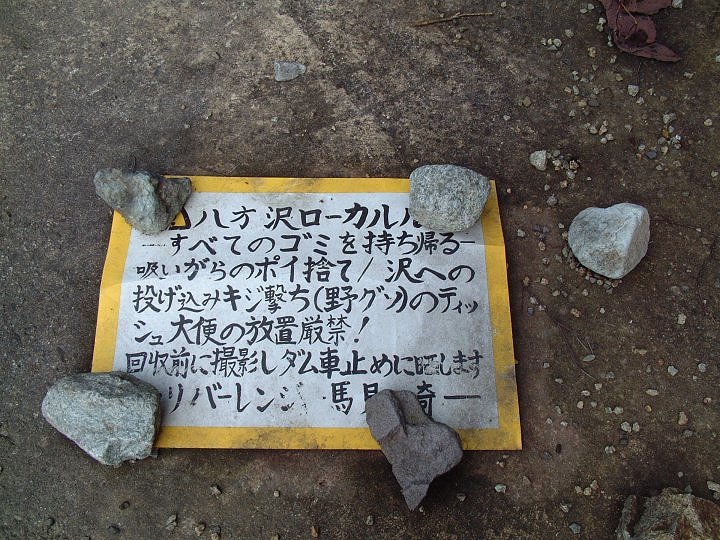 八方沢ローカルル
—すべてのゴミを持ち帰る—
吸いがらのポイ捨て/沢への
投げ込みキジ撃ち(野グソ)のティッ
シュ大便の放置厳禁!
回収前に撮影しダム車止めに晒します
リバーレンジ 馬見崎—